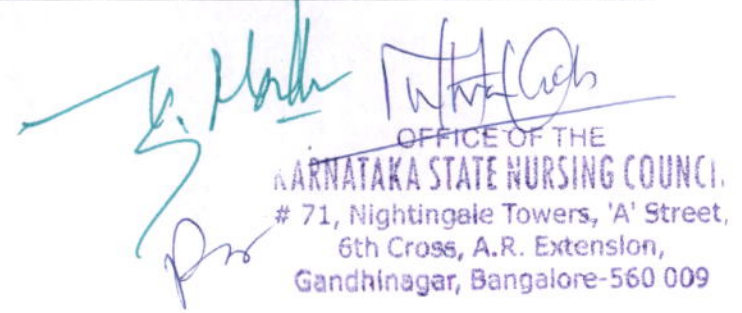 OFFICE OF THE
KARNATAKA STATE NURSING COUNCIL
# 71, Nightingale Towers, 'A' Street,
6th Cross, A.R. Extension,
Gandhinagar, Bangalore-560 009